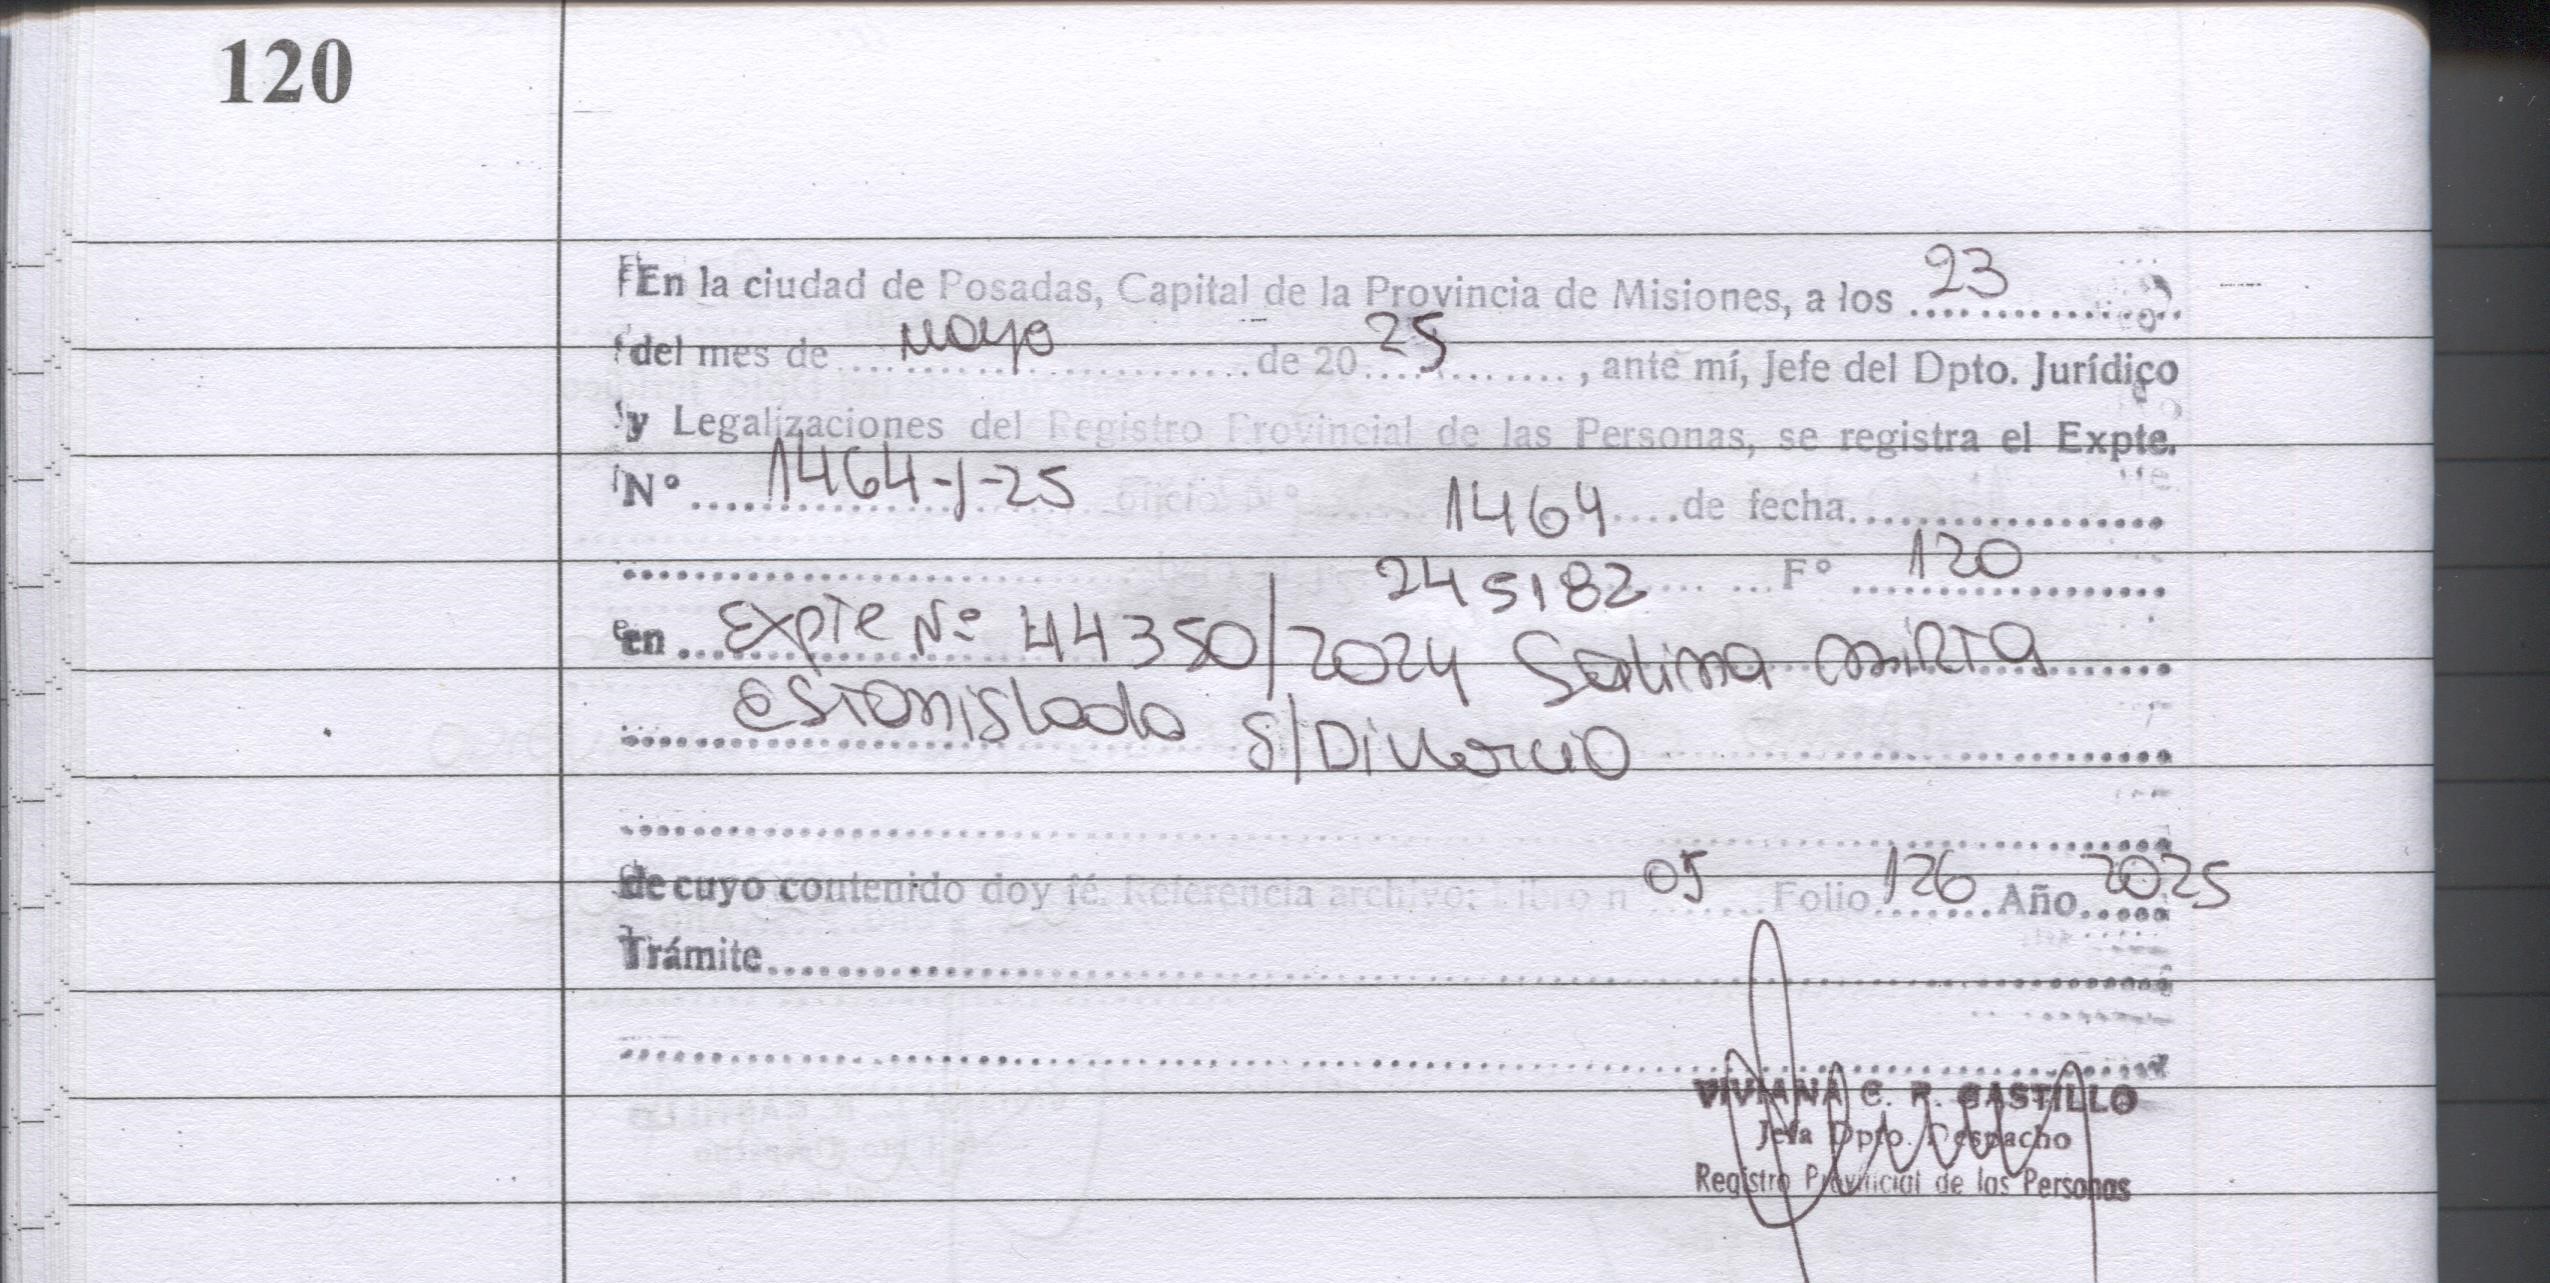 120
En la ciudad de Posadas, Capital de la Provincia de Misiones, a los 23
del mes de mayo de 20 25, ante mí, Jefe del Dpto. Jurídico
y Legalizaciones del Registro Provincial de las Personas, se registra el Expte.
Nº 1464-J-25 oficio nº 1464 de fecha
245182 Fº 120
en Expte Nº 44350/2024 Salina Mirta
Estanislada S/Divorcio
de cuyo contenido doy fé. Referencia archivo: Libro n 05 Folio 126 Año 2025
Trámite
VIVIANA C. R. CASTILLO
Jefa Dpto. Despacho
Registro Provincial de las Personas